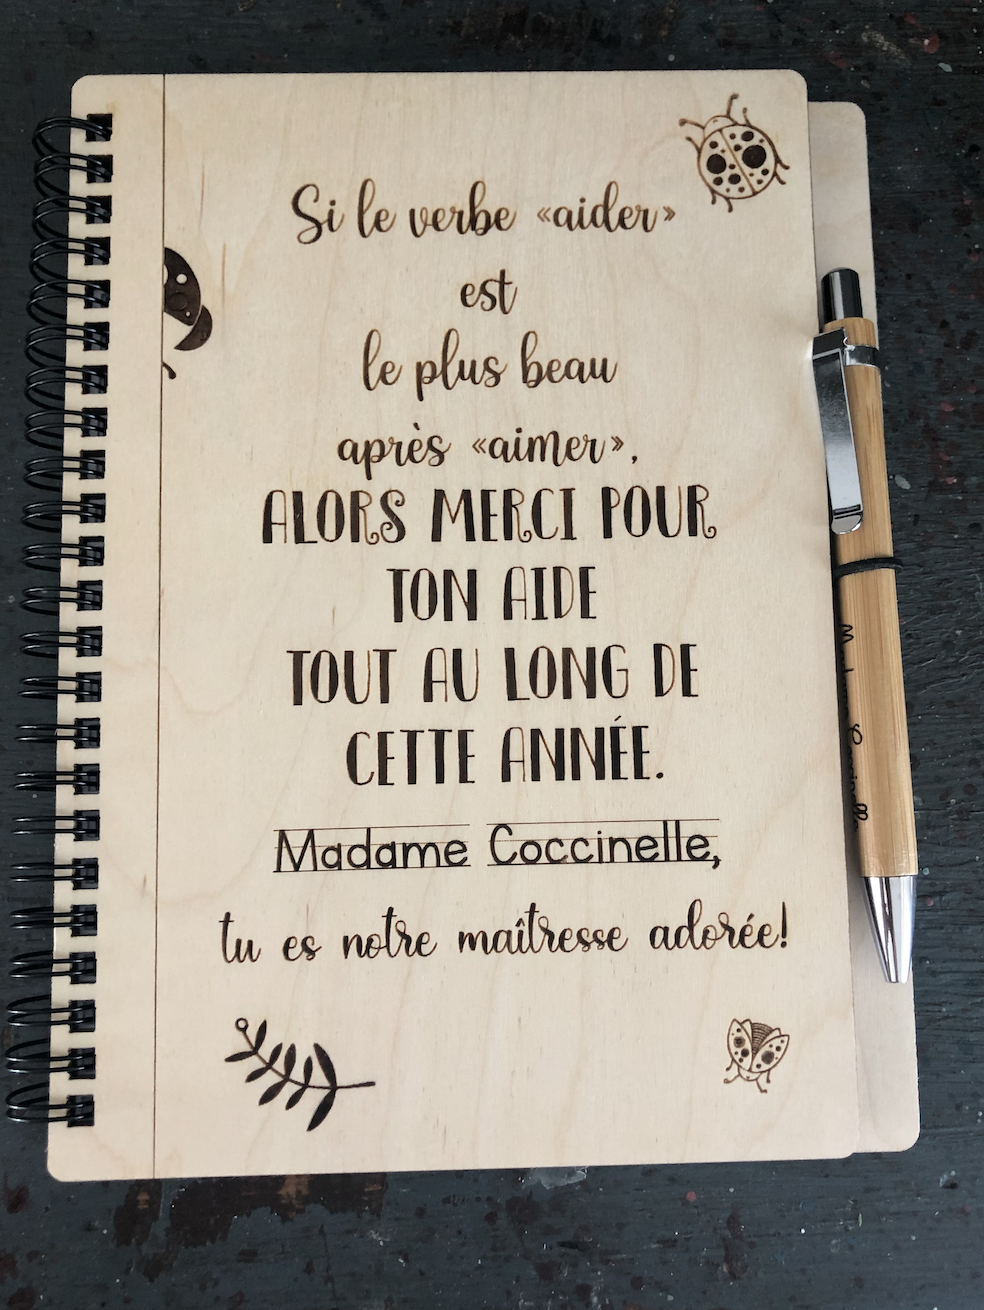 Si le verbe «aider»
est
le plus beau
après «aimer»,
ALORS MERCI POUR
TON AIDE
TOUT AU LONG DE
CETTE ANNÉE.
Madame Coccinelle,
tu es notre maîtresse adorée!